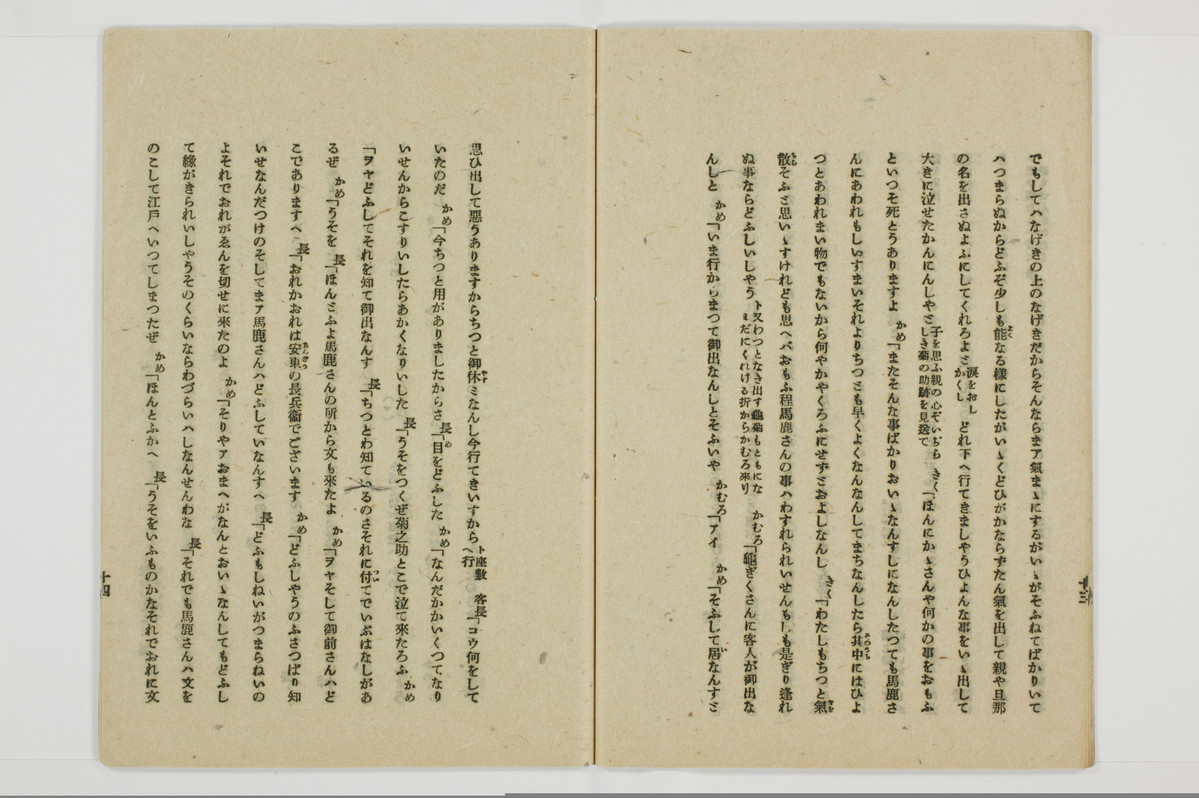 でもしてハなげきの上のなげきだからそんならまア氣まゝにするがいゝがそふねてばかりいて
ハつまらぬからどふぞ少しも能なる様にしたがいゝくどひがかならずたん氣を出して親や旦那
の名を出さぬよふにしてくれろよミ涙をおしかくしどれ下へ行てきましやうひよんな事をいゝ出して
大きに泣せたかんにんしやミ子を思ふ親の心ぞいぢらしき菊の助跡を見送てきく「ほんにかゝさんや何かの事をおもふ
といつそ死とうありますよかめ「またそんな事ばかりおいゝなんすしになんしたつても馬鹿さ
んにあわれもしいすまいそれよりちつミも早くよくなんなんしてまちなんしたら其中にはひよ
つとあわれまい物でもないから何やかやくろふにせずミおよしなんしきく「わたしもちつと氣
散そふミ思いゝすけれども思ヘバおもふ程馬鹿さんの事ハわすれられいせんもしも是ぎり逢れ
ぬ事ならどふしいしやうト又わつとなき出す龜菊もともになミだにくれける折からかむろ來りかむろ「龜ぎくさんに客人が御出な
んしとかめ「いま行からまつて御出なんしとそふいやかむろ「アイかめ「そふして居なんすミ
十三
思ひ出して惡うありますからちつと御休ミなんし今行てきいすからト座敷へ行客長「コウ何をして
いたのだかめ「今ちつと用がありましたからさ長「目をどふしたかめ「なんだかかいくつてなり
いせんからこすりいしたらあかくなりいした長「うそをつくぜ菊之助とこで泣て來たろふかめ
「ヲヤどふしてそれを知て御出なんす長「ちつとわ知ているのさそれに付てでいぶはなしがあ
るぜかめ「うそを長「ほんミふよ馬鹿さんの所から文も來たよかめ「ヲヤそして御前さんハど
こでありますへ長「おれかおれは安東の長兵衞でございますかめ「どふしやうのふさつぱり知
いせなんだつけのそしてまア馬鹿さんハどふしていなんすへ長「どふもしねいがつまらねいの
よそれでおれがゑんを切せに來たのよかめ「そりやアおまへがなんとおいゝなんしてもどふし
て緣がきられいしやうそのくらいならわづらいハしなんせんわな長「それでも馬鹿さんハ文を
のこして江戸へいつてしまつたぜかめ「ほんとふかへ長「うそをいふものかなそれでおれに文
十四